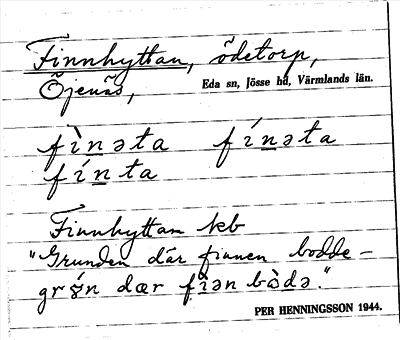 Finnhyttan, ödetorp,
Öjenäs, Eda sn, Jösse hd, Värmlands län.
fìnəta fínəta
fínta
Finnhyttan kb
"Grunden där finnen bodde –
grǿn dær fìən bòdə."
PER HENNINGSSON 1944.